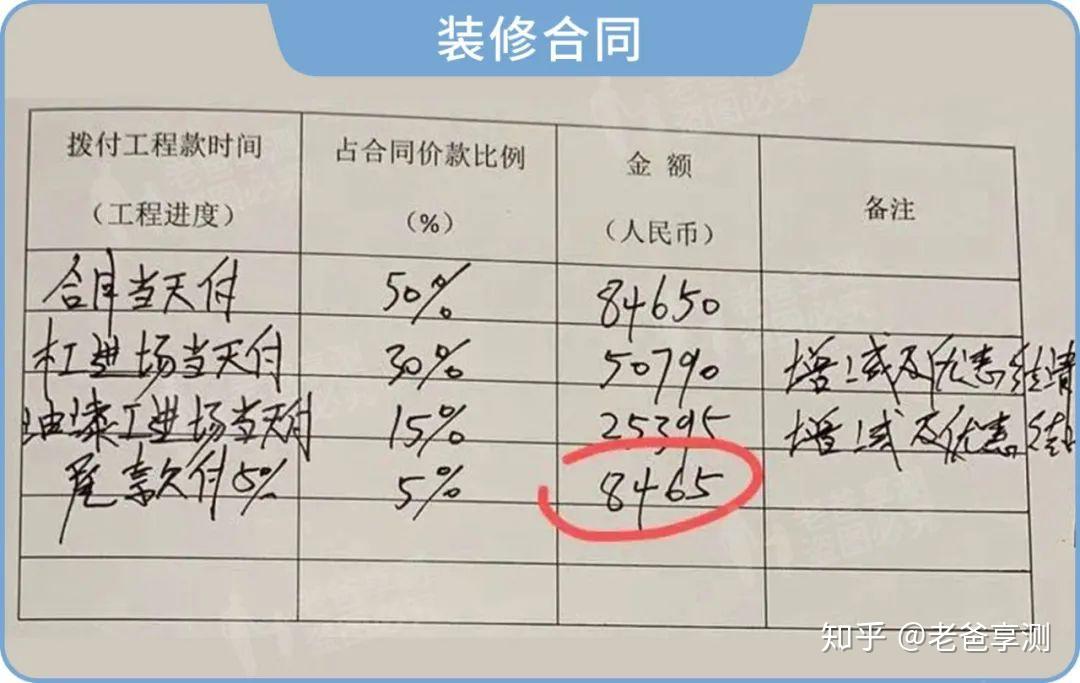 装修合同
拨付工程款时间 占合同价款比例 金 额 备注
(工程进度) (%) (人民币)
合同当天付 50% 84650
木工进场当天付 30% 50790 增减或及优惠结清
油漆工进场当天付 15% 25395 增减或及优惠结
尾款欠付5% 5% 8465
知乎 @老爸享测